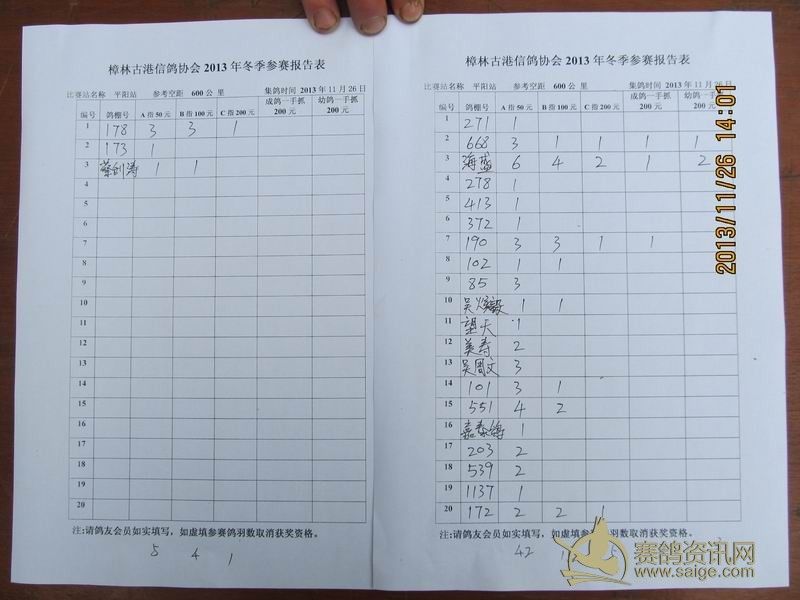 樟林古港信鸽协会 2013 年冬季参赛报告表
比赛站名称 平阳站 参考空距 600公 里 集鸽时间 2013 年 11 月 26 日
编号 鸽棚号 A 指 50 元 B 指 100 元 C 指 200 元 成鸽一手抓 200 元 幼鸽一手抓 200 元
1 178 3 3 1
2 173 1
3 蔡创涛 1 1
4
5
6
7
8
9
10
11
12
13
14
15
16
17
18
19
20
注:请鸽友会员如实填写，如虚填参赛鸽羽数取消获奖资格。
5 4 1
樟林古港信鸽协会 2013 年冬季参赛报告表
比赛站名称 平阳站 参考空距 600公 里 集鸽时间 2013 年 11 月 26 日
编号 鸽棚号 A 指 50 元 B 指 100 元 C 指 200 元 成鸽一手抓 200 元 幼鸽一手抓 200 元
1 271 1
2 668 3 1 1 1 1
3 海盛 6 4 2 1 2
4 278 1
5 413 1
6 372 1
7 190 3 3 1 1
8 102 1 1
9 85 3
10 吴 1 1
11 望天 1
12 美寿 2
13 吴周文 3
14 101 3 1
15 551 4 2
16 嘉泰鸽 1
17 203 2
18 539 2
19 1137 1
20 172 2 2 1
注:请鸽友会员如实填写，如虚填参赛鸽羽数取消获奖资格。
42
2013/11/26 14:01
赛鸽资讯网
www.saige.com